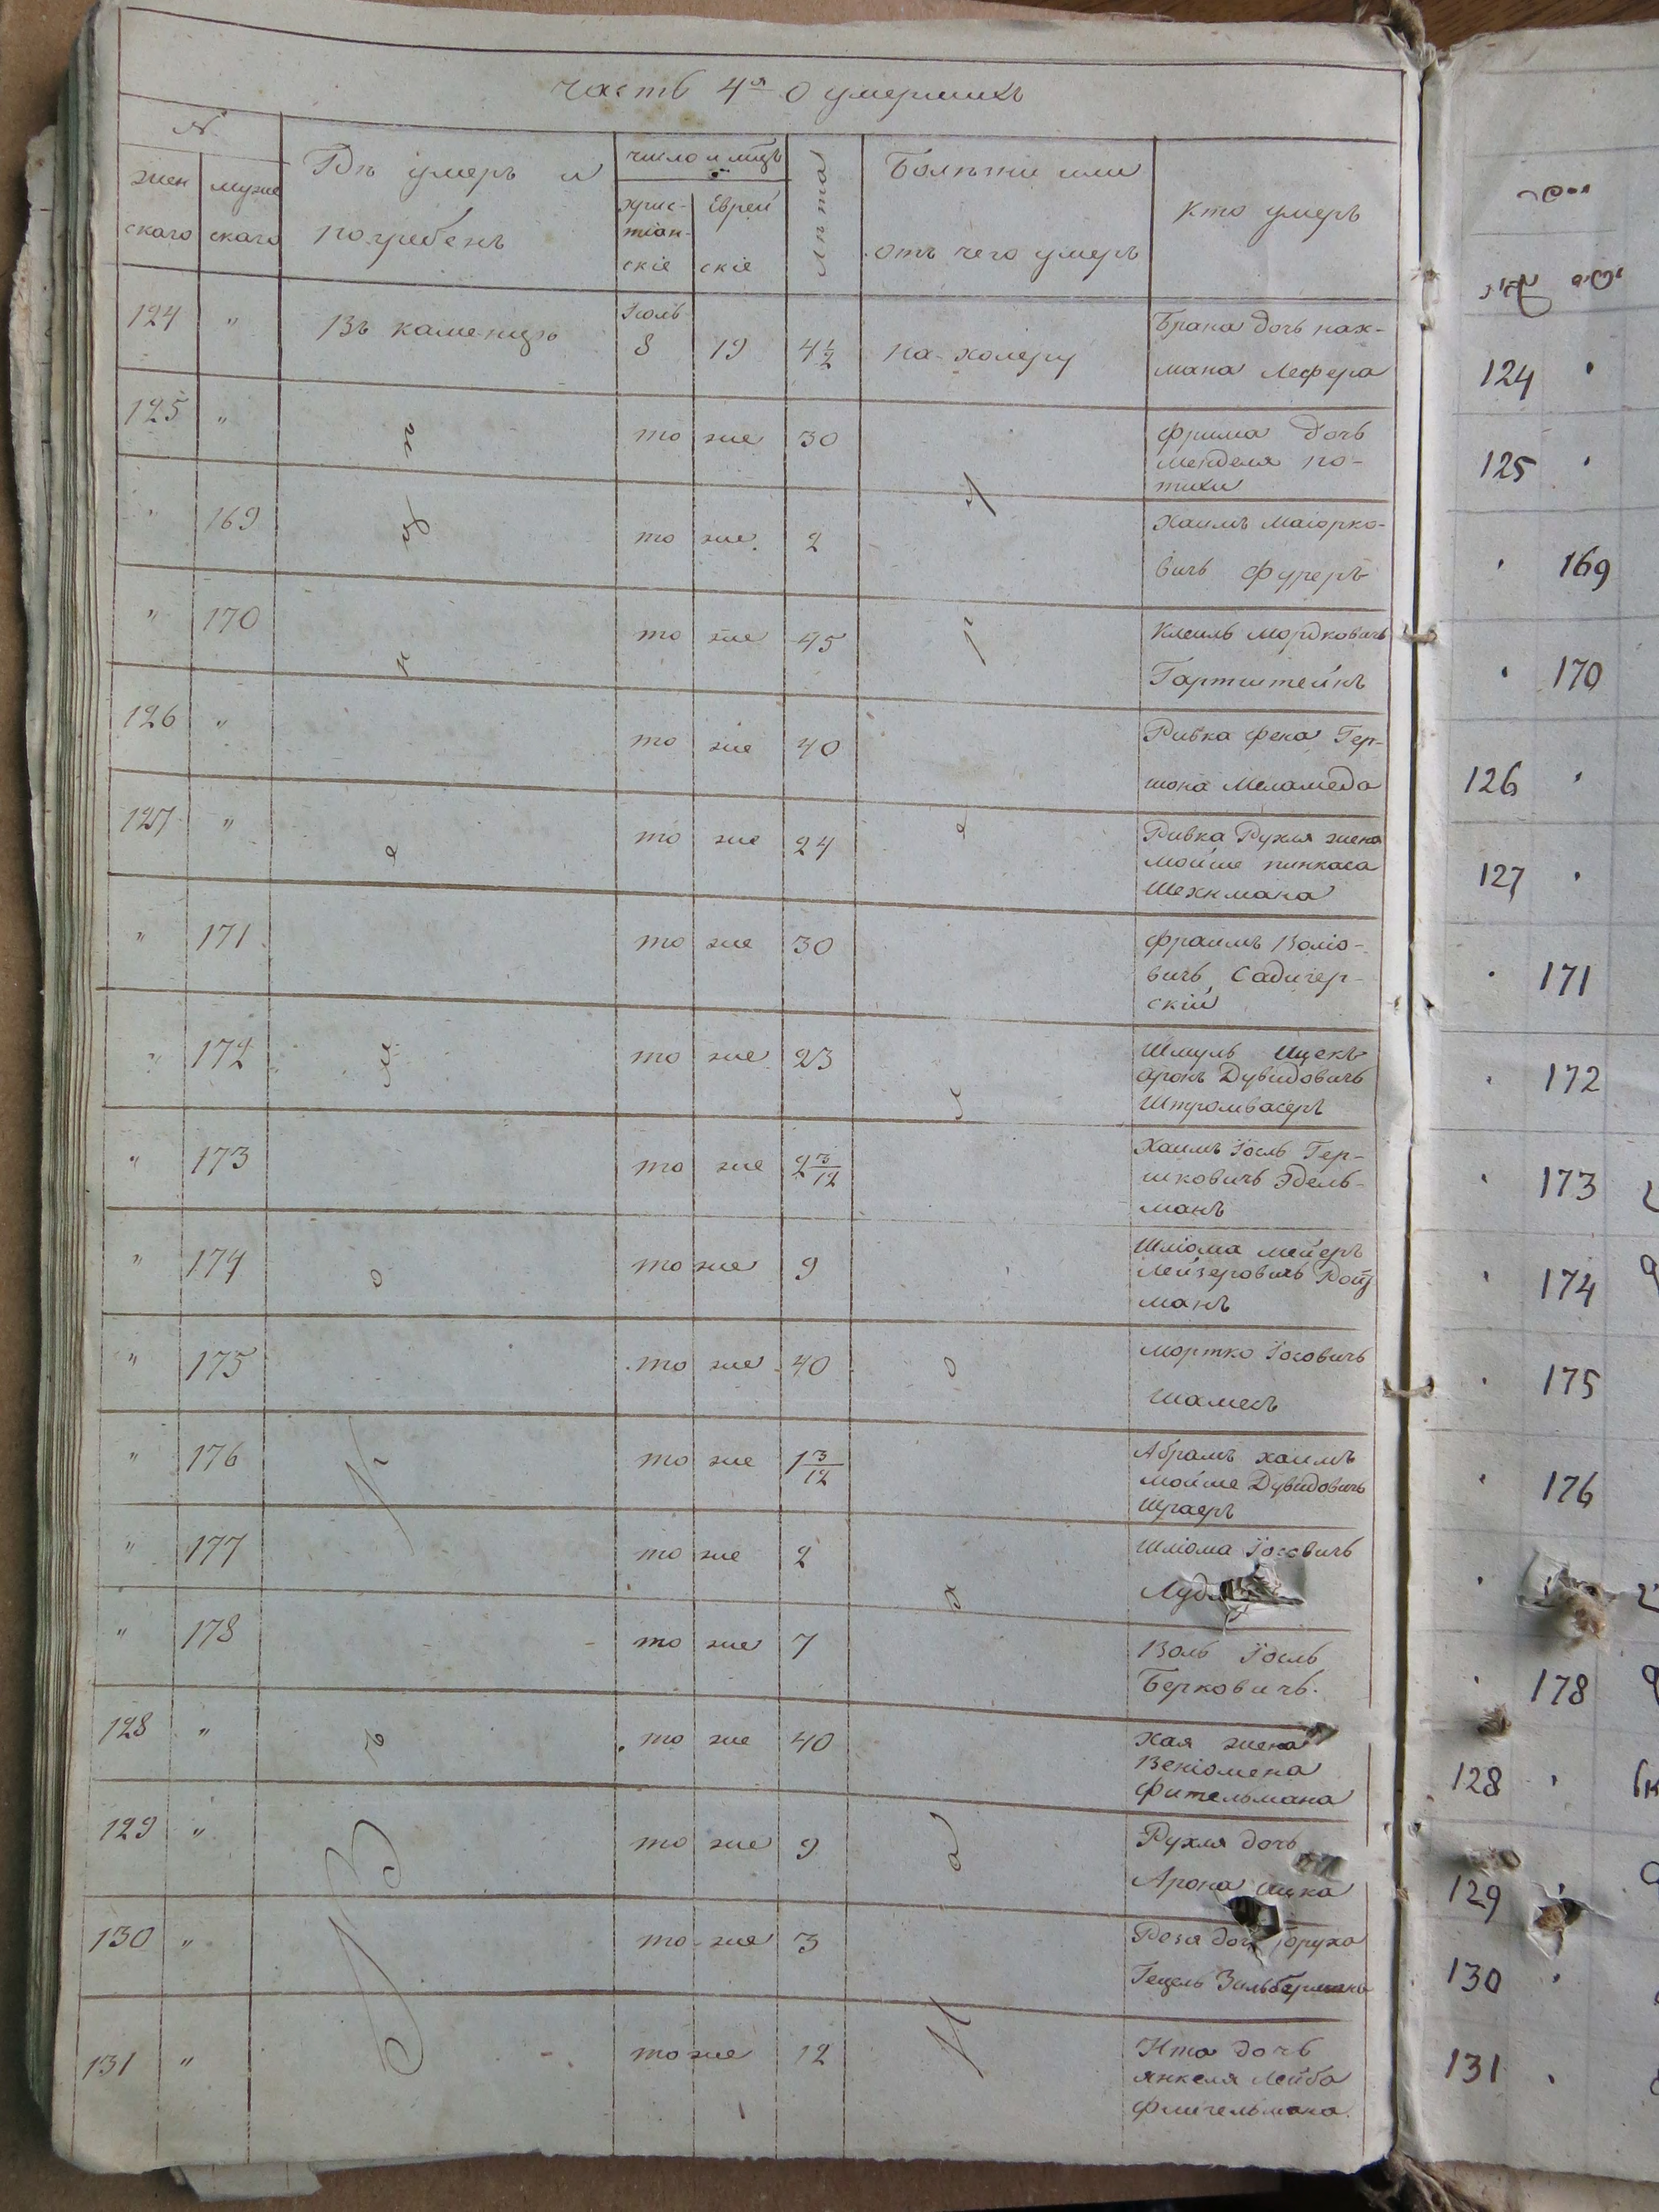 часть 4я о умершихъ
N
жен
скаго
муже
скаго
Гдѣ умеръ и
погребенъ
число и мцъ
хрис-
тіан-
скіе
Еврей
скіе
Лѣта
Болѣзни или
отъ чего умеръ
Кто умеръ
124 " Въ каменцѣ Іюль 8 19 4½ на холеру Брана дочь нах-
мана Лефера
125 " то же 30 фрима дочь
менделя по-
" 169 то же 2 Хаимъ Маіорко-
вичъ фуреръ
" 170 то же 45 Клеиль Мордковичъ
Гартштейнъ
126 " то же 40 Ривка фена Гер-
шона Меламеда
127 " то же 24 Ривка Рухля жена
мойше пинкаса
Шехнмана
" 171 то же 30 фраимъ Воліо-
вичъ Садигер-
скій
" 172 то же 23 Шмуль Ицекъ
аронъ Дувидовичъ
Штромвасеръ
" 173 то же 2 3/12 Хаимъ Іосль Гер-
шковичъ Эдель-
манъ
" 174 то же 9 Шліома мейеръ
Лейзеровичъ Ройз
манъ
" 175 то же 40 мортко Іосовичъ
шамесъ
" 176 то же 1 3/12 Абрамъ хаимъ
мойше Дувидовичъ
" 177 то же 2 Шліома Іосовичъ
" 178 то же 7 Воль Іосль
Берковичъ.
128 " то же 40 Хая жена
Веніомена
фительмана
129 " то же 9 Рухля дочь
Арона ицка
130 " то же 3 Резя дочь Боруха
Гецель Зильбермана
131 " то же 12 Ита дочь
янкеля Лейба
флигельмана
Въ г. К о м е н ц ѣ
На х о л е р у
124
125
169
170
126
127
171
172
173
174
175
176
178
128
129
130
131